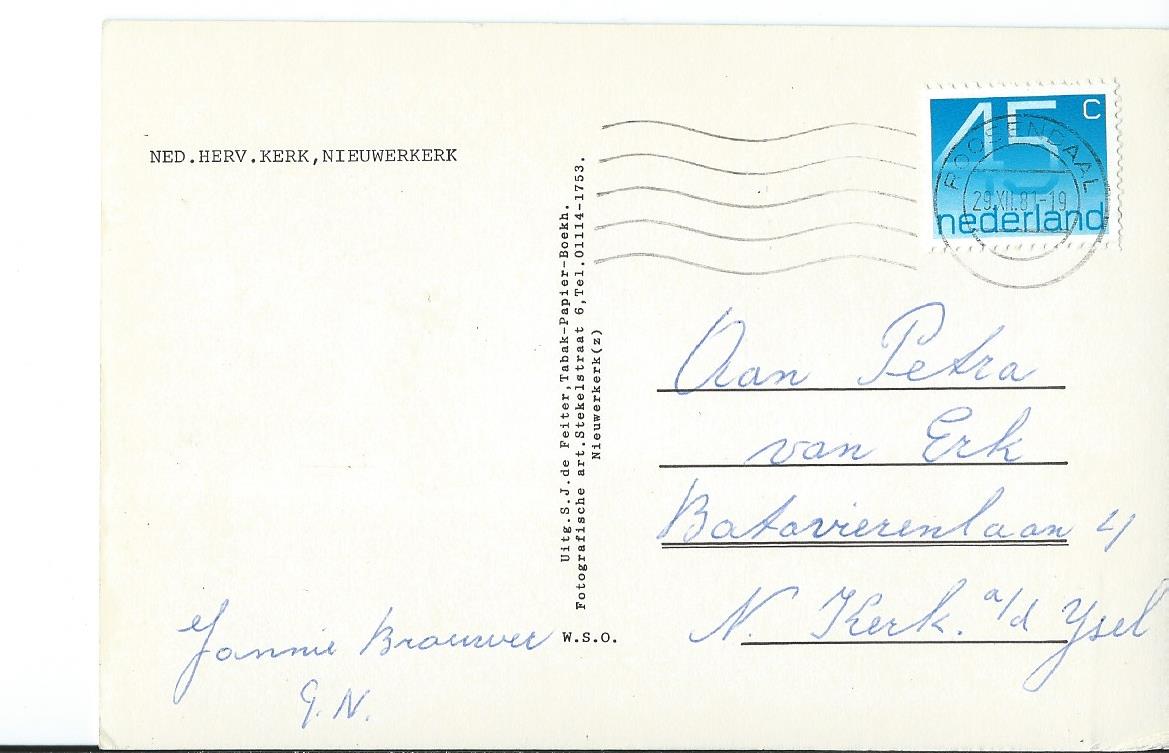 NED.HERV.KERK,NIEUWERKERK
Jannie Brouwer
G.N.
Uitg.S.J.de Feiter,Tabak-Papier-Boekh.
Fotografische art.Stekelstraat 6,Tel.01114-1753.
Nieuwerkerk(z)
W.S.O.
45 C
nederland
ROOSENDAAL
29.XII.81-19
Aan Petra
van Erk
Batavierenlaan 4
N. Kerk. a/d Ysel